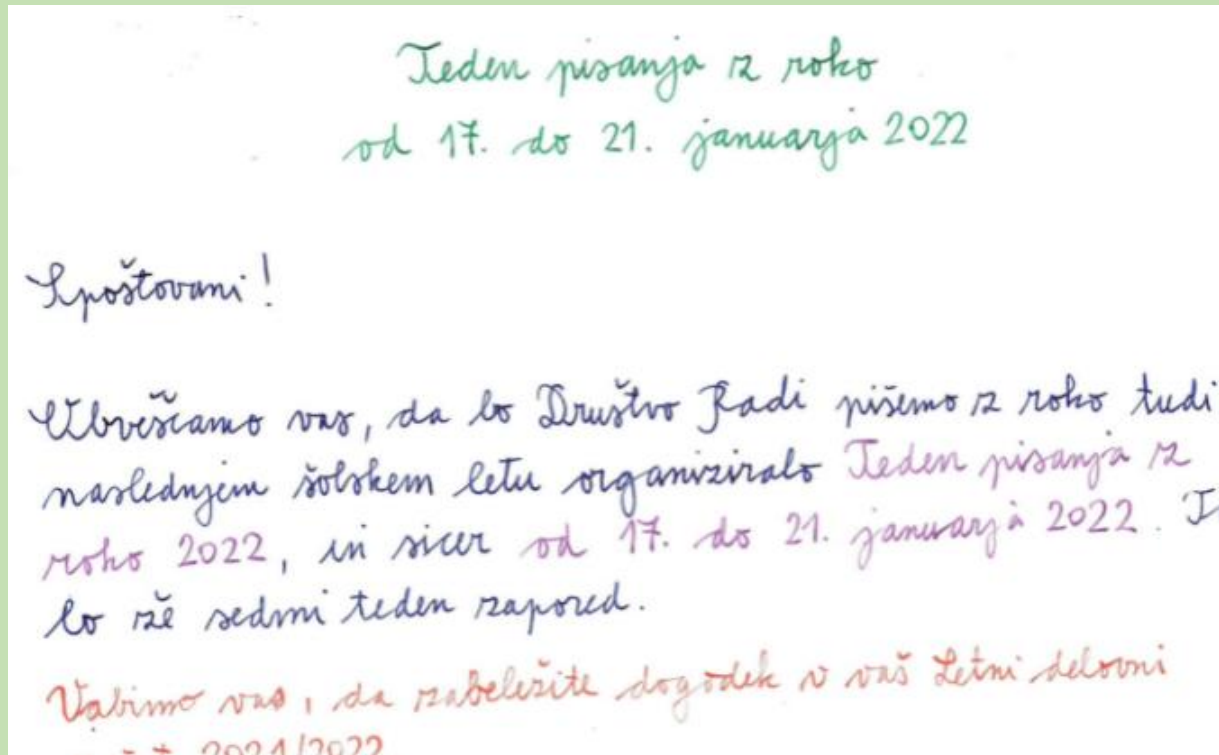 Teden pisanja z roko
od 17. do 21. januarja 2022
Spoštovani!
Obveščamo vas, da bo Društvo Radi pišemo z roko tudi
naslednjem šolskem letu organiziralo Teden pisanja z
roko 2022, in sicer od 17. do 21. januarja 2022.
bo že sedmi teden zapored.
Vabimo vas, da zabeležite dogodek v vaš Letni delovni
2021/2022